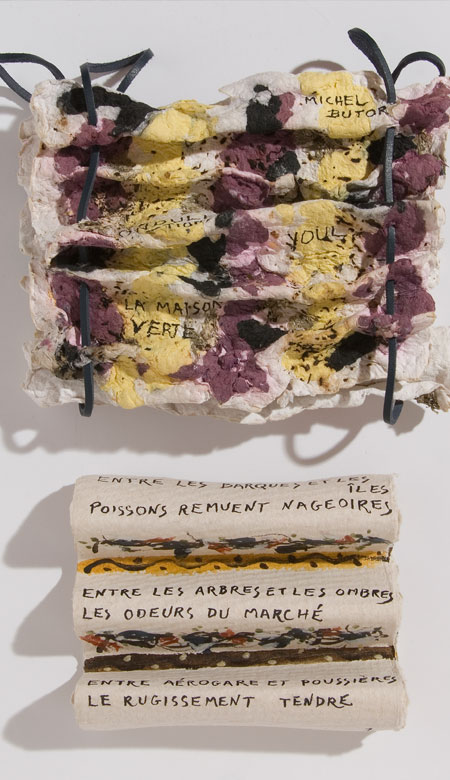 MICHEL
BUTOR
YOUL
LA MAISON
VERTE
ENTRE LES BARQUES ET LES
ÎLES
POISSONS REMUENT NAGEOIRES
ENTRE LES ARBRES ET LES OMBRES
LES ODEURS DU MARCHÉ
ENTRE AÉROGARE ET POUSSIÈRES
LE RUGISSEMENT TENDRE